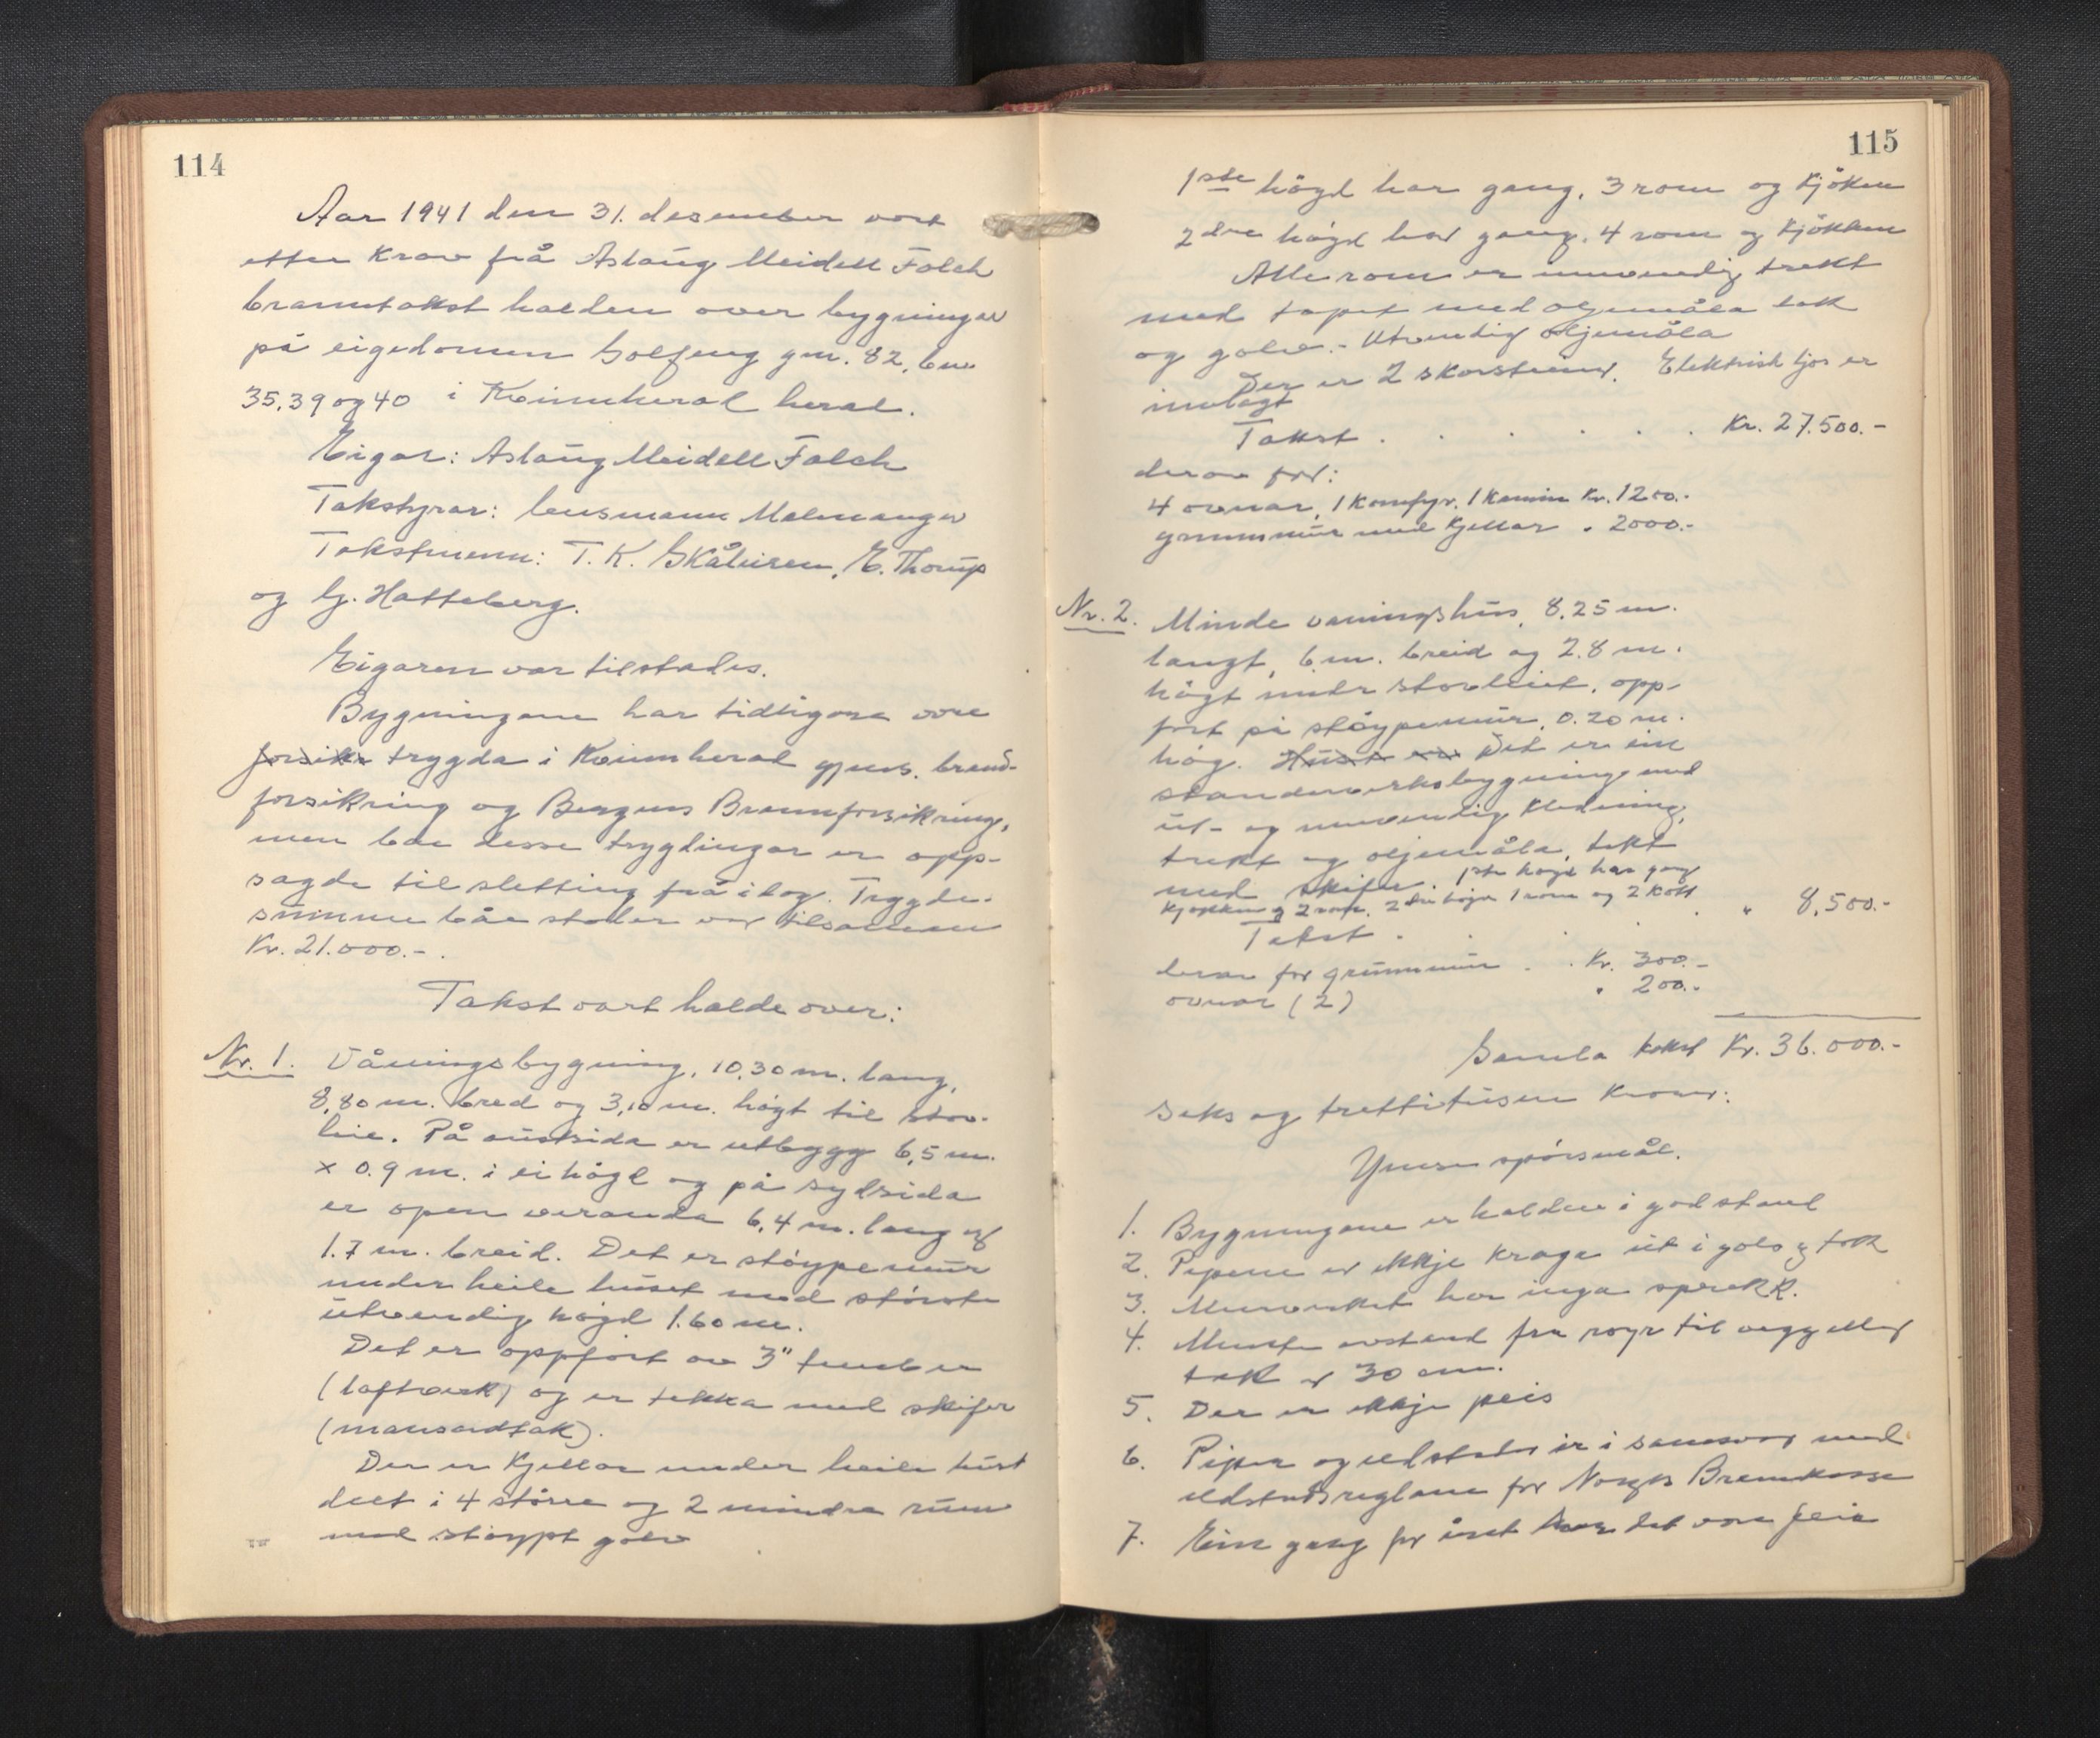 114
Aar 1941 den 31. desember vart
etter krav frå Aslaug Meidell Falch
branntakst halden over bygningar
på eigedomen Solfeng gnr. 82, bnr.
35, 39 og 40 i Kvinnherad herad.
Eigar: Aslaug Meidell Falch
Takstyrar: lensmann Malmanger
Takstmenn: T. K. Skåleisen, E. Thorup
og G. Hatteberg.
Eigaren var tilstades.
Bygningane har tidligare vore
forsikr trygda i Kvinnherad gjens. brand-
forsikring og Bergens Brannforsikring,
men båe desse trygdingar er opp-
sagde til sletting frå i dag. Trygde-
summen båe stader var tilsaman
Kr. 21.000.-.
Takst vart halde over:
Nr. 1. Våningsbygning, 10,30 m. lang,
8,80 m. bred og 3,10 m. høgt til stov-
leie. På austsida er utbygg 6,5 m.
x 0.9 m. i ei høgd og på sydsida
er open veranda 6,4 m. lang og
1.7 m. breid. Det er støypemur
under heile huset med største
utvendig høgd 1.60 m.
Det er oppført av 3" tømber
(laftverk) og er tekka med skifer
(mansardtak).
Der er kjellar under heile huset
delt i 4 større og 2 mindre rum
med støypt golv
115
1ste høgd har gang, 3 rom og kjøken
2dre høgd har gang, 4 rom og kjøkken
Alle rom er innvendig trekt
med tapet med oljemåla tak
og golv.- Utvendig oljemåla
Der er 2 skorsteiner. Elektrisk ljos er
innlagt
Takst . . . . . . Kr. 27.500.-
derav for:
4 ovnar, 1 komfyr, 1 kamin Kr. 1200.-
grunnmur med kjellar " 2000.-
Nr. 2. Mindre våningshus, 8,25 m.
langt, 6 m. breid og 2.8 m.
høgt under stovleiet, opp-
ført på støypemur, 0.20 m.
høg. Huset er Det er ein
standerverksbygning med
ut- og innvendig kledning,
trekt og oljemåla, tekt
med skifer. 1ste høgd har gang
kjøkken og 2 rom. 2dre høgd 1 rom og 2 kott
Takst . . . . " 8,500.-
derav for grunnmur . . Kr. 300.-
ovnar (2) " 200.-
Samla takst Kr. 36.000.-
Seks og trettitusen kroner:
Ymse spørsmål.
1. Bygningane er haldne i god stand
2. Pipene er ikkje kraga ut i golv og tak
3. Murverket har inga sprekk.
4. Minste avstand fra røyr til vegg eller
tak er 30 cm.
5. Der er ikkje peis
6. Piper og eldstader er i samsvar med
eldstadsreglane for Norges Brannkasse
7. Ein gang pr året har det vore feia